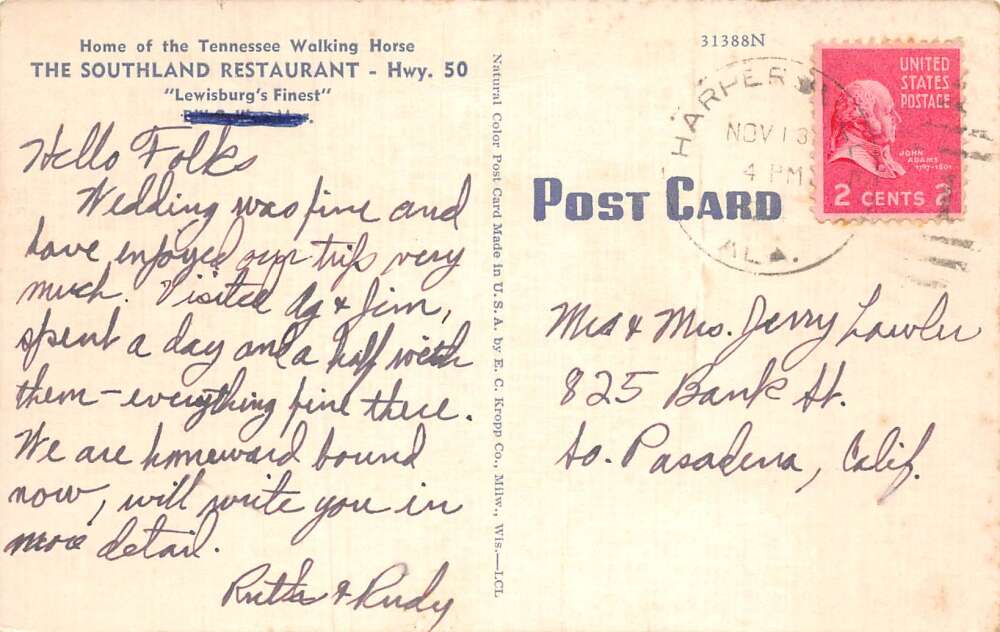 Home of the Tennessee Walking Horse
THE SOUTHLAND RESTAURANT - Hwy. 50
"Lewisburg's Finest"
Hello Folks
Wedding was fine and
have enjoyed our trip very
much. Visited Ag & Jim,
spent a day and a half with
them - everything fine there.
We are homeward bound
now, will write you in
more detail.
Ruth & Rudy
Natural Color Post Card Made in U.S.A. by E. C. Kropp Co., Milw., Wis.—LCL
31388N
HARPERSV
NOV 13
4 PM
ALA.
UNITED
STATES
POSTAGE
JOHN
ADAMS
1797-1801
2 CENTS 2
POST CARD
Mr & Mrs. Jerry Lawler
825 Bank St.
So. Pasadena, Calif.